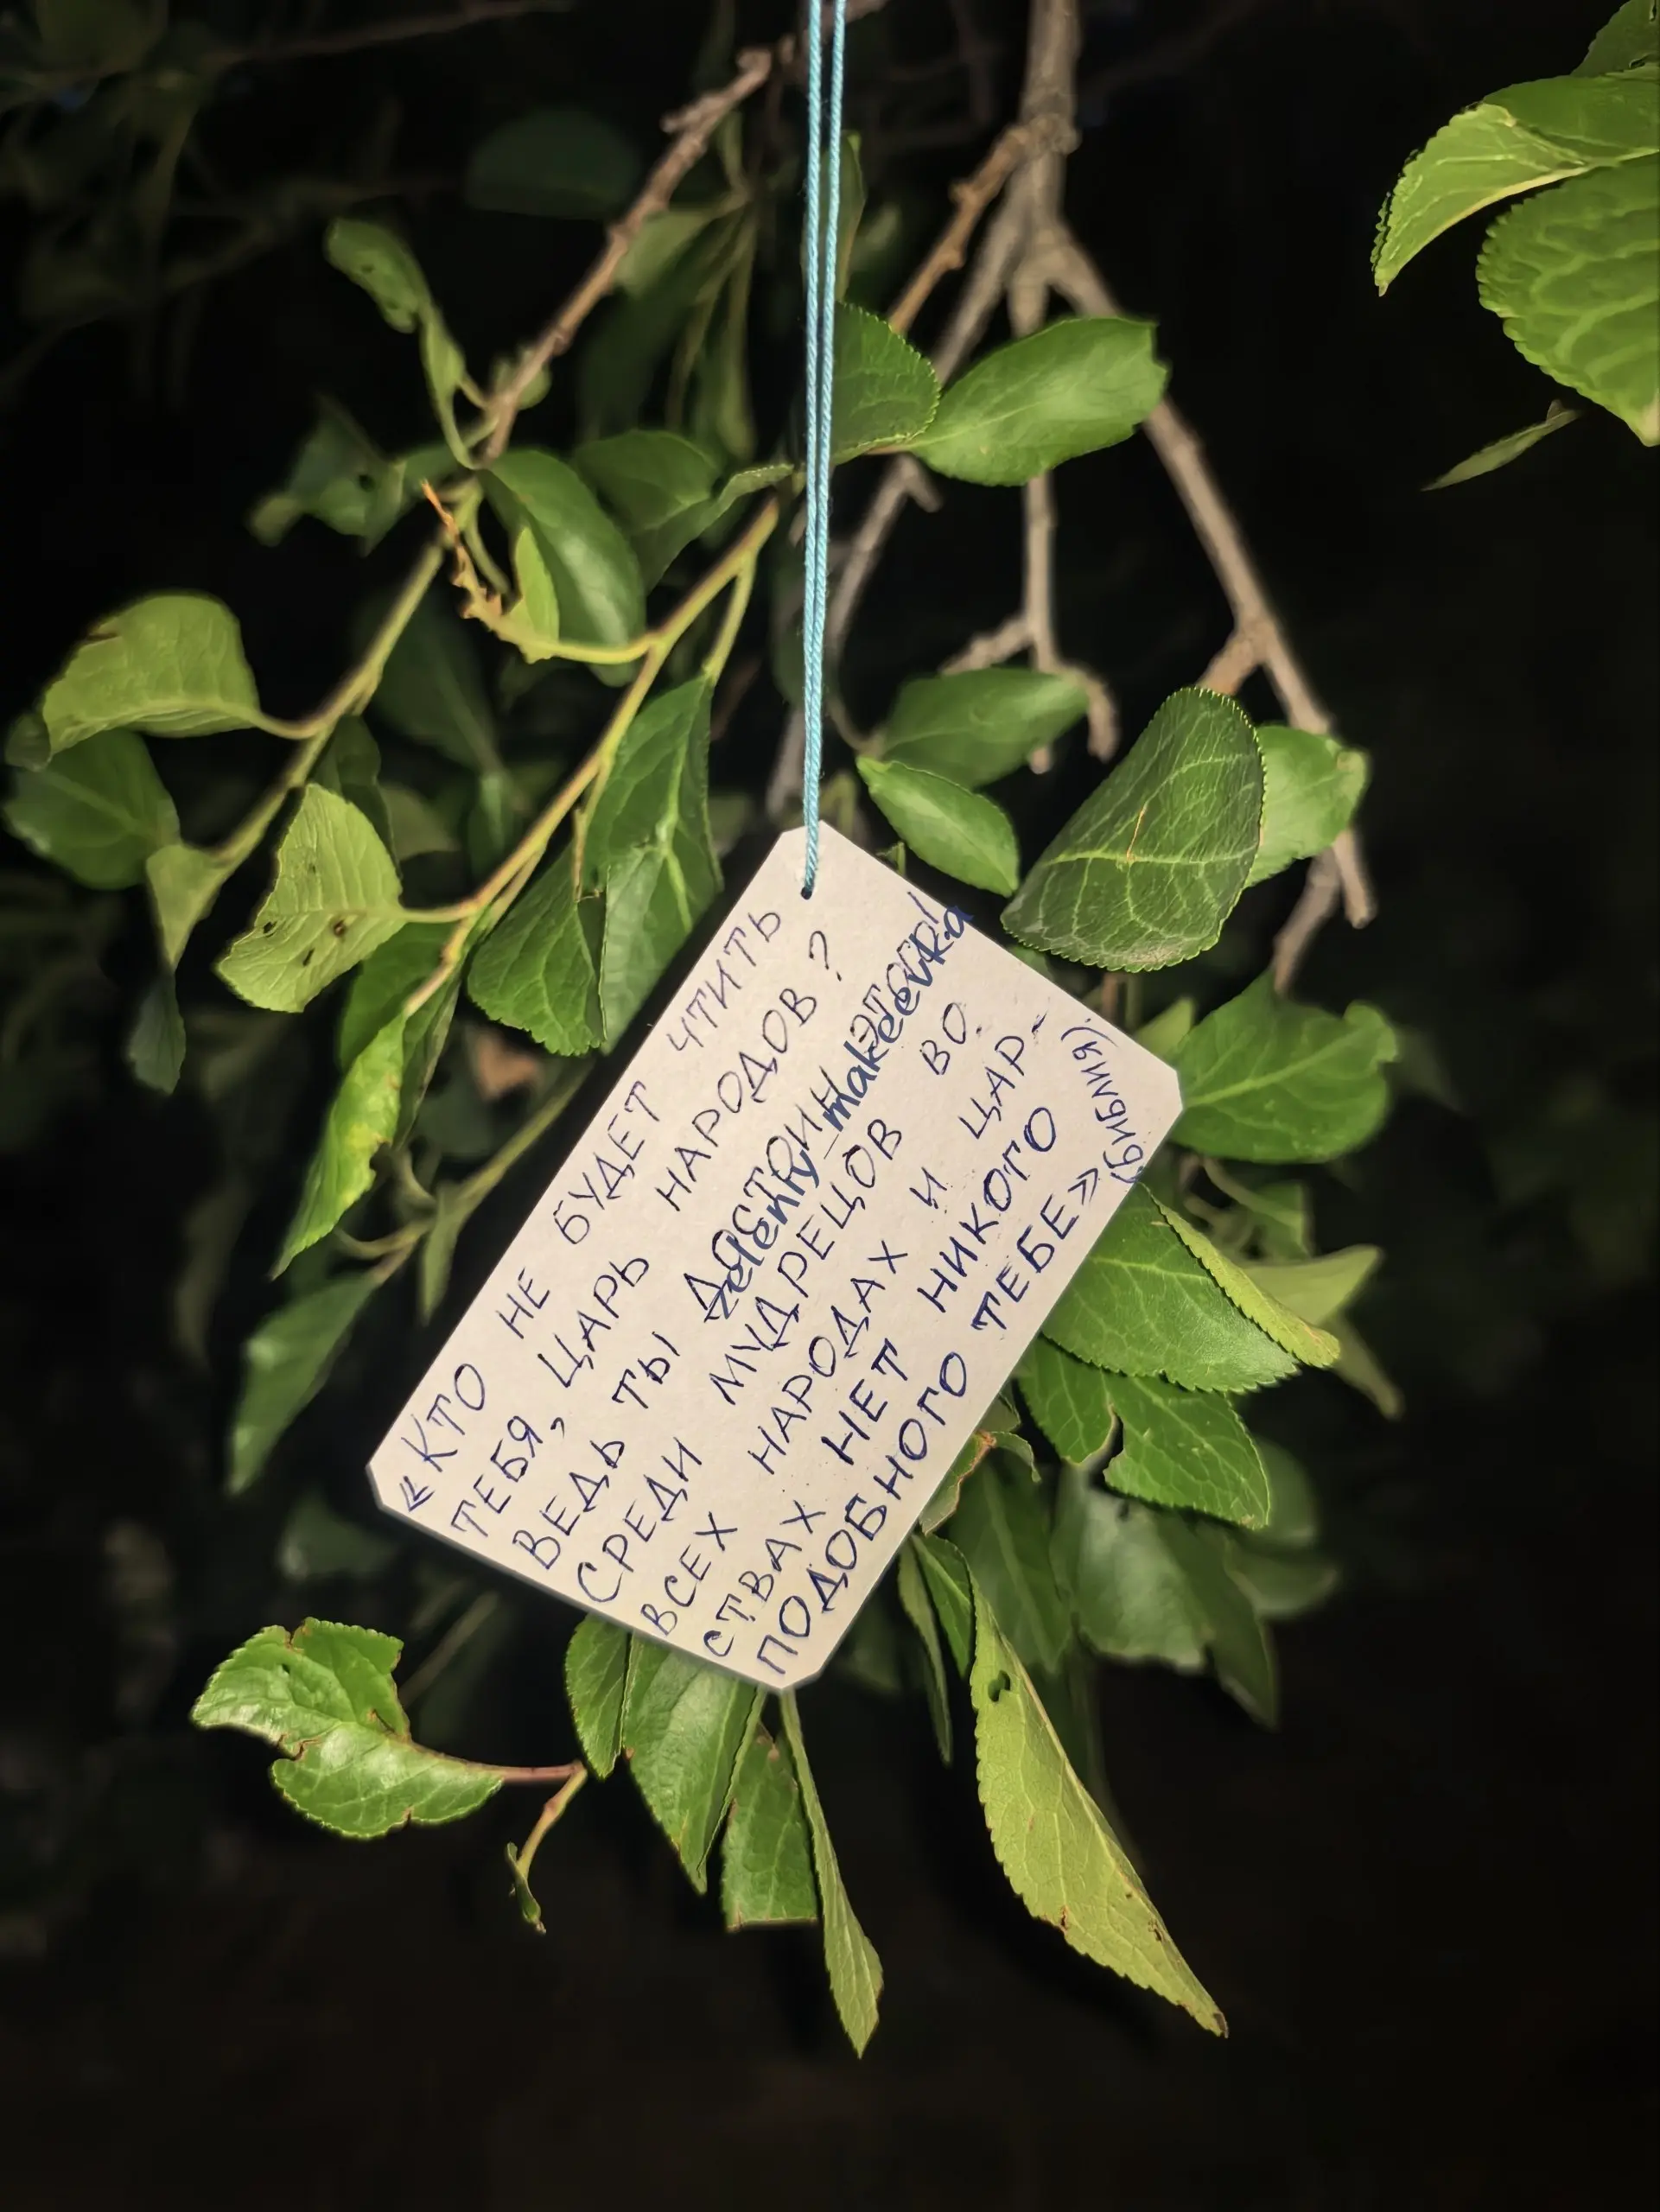 «КТО НЕ БУДЕТ ЧТИТЬ
ТЕБЯ, ЦАРЬ НАРОДОВ?
ВЕДЬ ТЫ ДОСТОИН ЭТОГО!
zeleniy_makeevka
СРЕДИ МУДРЕЦОВ ВО
ВСЕХ НАРОДАХ И ЦАР-
СТВАХ НЕТ НИКОГО
ПОДОБНОГО ТЕБЕ»
(БИБЛИЯ)